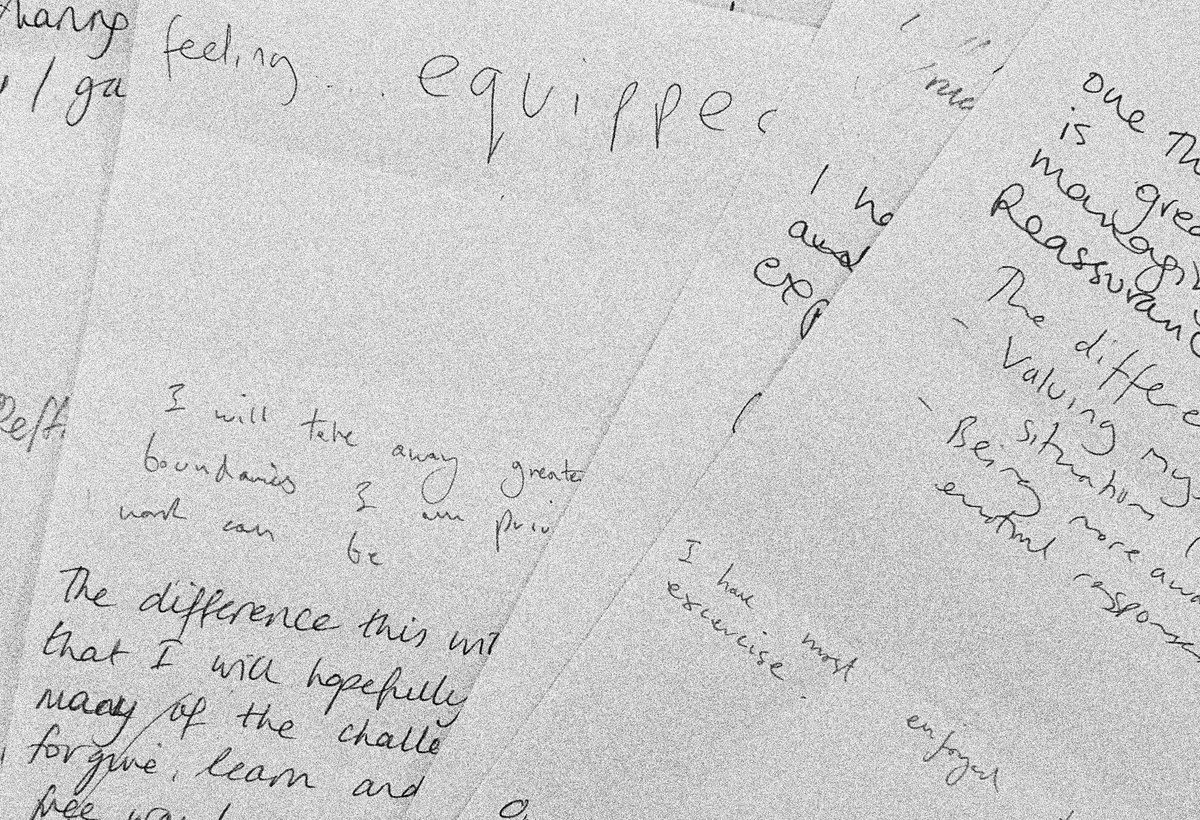 / ga
feeling ....
equippe
I will take away greate
boundaries I am priv
work can be
The difference this wi
that I will hopefully
many of the challe
forgive, learn and
free
I ha
and
exp
I have most enjoyed
excercise.
one Th
is grea
managin
Reassuranc
The differe
- Valuing my
situation
- Being more awa
emotional response